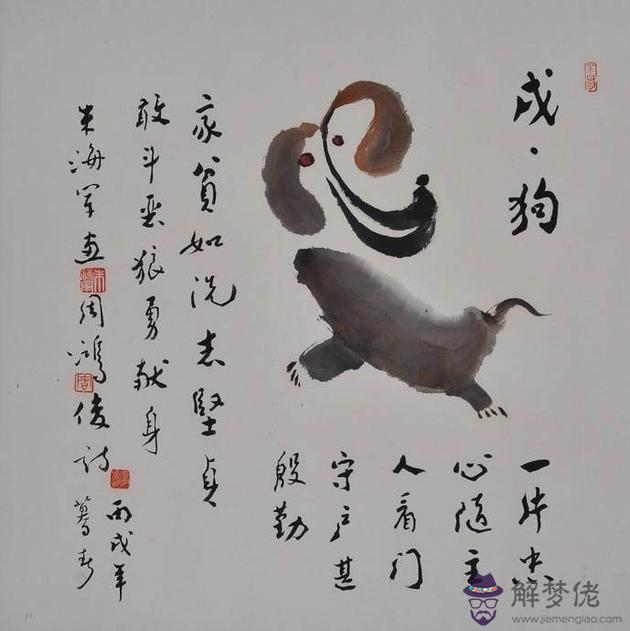 戌·狗
一片忠
心随主
人看门
守户甚
殷勤
家贫如洗志坚贞
敢斗恶狼勇献身
朱海军画 周鸿俊诗
丙戌年
暮春
解梦佬
www.jiemenglao.com